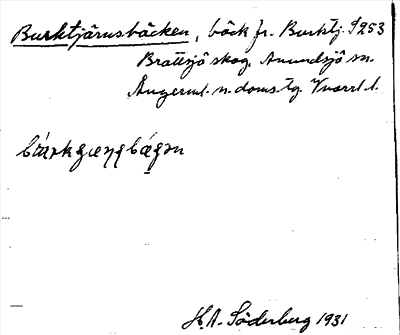 Burktjärnsbäcken, bäck fr. Burktj. S 253
Brattsjö skog, Anundsjö sn.
Ångerml. n. domstg. Vnorrl. l.
H.A. Söderberg 1931